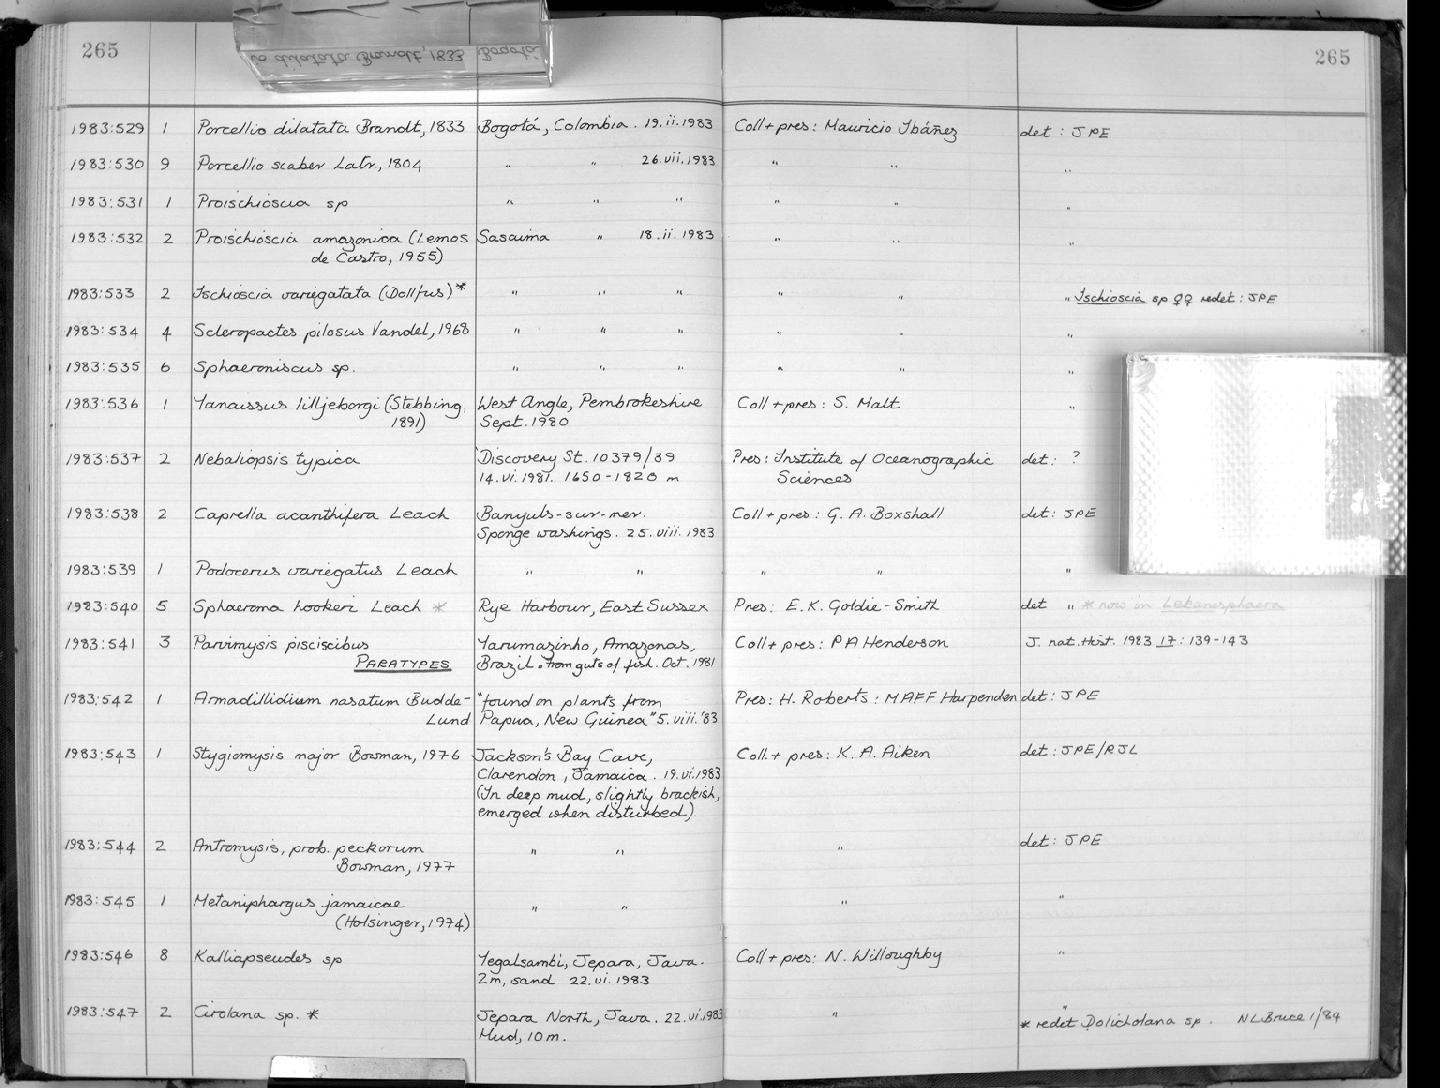 265
265
1983:529 1 Porcellio dilatata Brandt, 1833 Bogotá, Colombia. 19.ii.1983 Coll + pres: Mauricio Ibáñez det: JPE
1983:530 9 Porcellio scaber Latr, 1804 " " 26.vii.1983 " " "
1983:531 1 Proischioscia sp " " " " " "
1983:532 2 Proischioscia amazonica (Lemos Sasaima " 18.ii.1983 " " "
de Castro, 1955)
1983:533 2 Ischioscia variegatata (Dollfus)* " " " " " " Ischioscia sp ♀♀ redet: JPE
1983:534 4 Scleropactes pilosus Vandel, 1968 " " " " " "
1983:535 6 Sphaeroniscus sp. " " " " " "
1983:536 1 Tanaissus lilljeborgi (Stebbing, West Angle, Pembrokeshire Coll + pres: S. Malt. "
1891) Sept. 1980
1983:537 2 Nebaliopsis typica 'Discovery St. 10379/39 Pres: Institute of Oceanographic det: ?
14.vi.1981. 1650-1820 m Sciences
1983:538 2 Caprella acanthifera Leach Banyuls-sur-mer. Coll + pres: G. A. Boxshall det: JPE
Sponge washings. 25.viii.1983
1983:539 1 Podocerus variegatus Leach " " " " "
1983:540 5 Sphaeroma hookeri Leach * Rye Harbour, East Sussex Pres: E.K. Goldie-Smith det " * now in Lekanesphaera
1983:541 3 Parvimysis pisciscibus Yarumazinho, Amazonas, Coll + pres: P A Henderson J. nat. Hist. 1983 17: 139-143
PARATYPES Brazil. from guts of fish. Oct. 1981
1983:542 1 Armadillidium nasatum Budde- "found on plants from Pres: H. Roberts: MAFF Harpenden det: JPE
Lund Papua, New Guinea" 5.viii.'83
1983:543 1 Stygiomysis major Bowman, 1976 Jackson's Bay Cave, Coll. + pres: K. A. Aiken det: JPE/RJL
Clarendon, Jamaica. 19.vi.1983
(In deep mud, slightly brackish,
emerged when disturbed)
1983:544 2 Antromysis, prob. peckorum " " " det: JPE
Bowman, 1977
1983:545 1 Metaniphargus jamaicae " " " "
(Holsinger, 1974)
1983:546 8 Kalliapseudes sp Tegalsambi, Jepara, Java. Coll + pres: N. Willoughby "
2m, sand 22.vi.1983
1983:547 2 Cirolana sp. * Jepara North, Java. 22.vi.1983 " "
Mud, 10m. * redet Dolicholana sp. NL Bruce 1/84